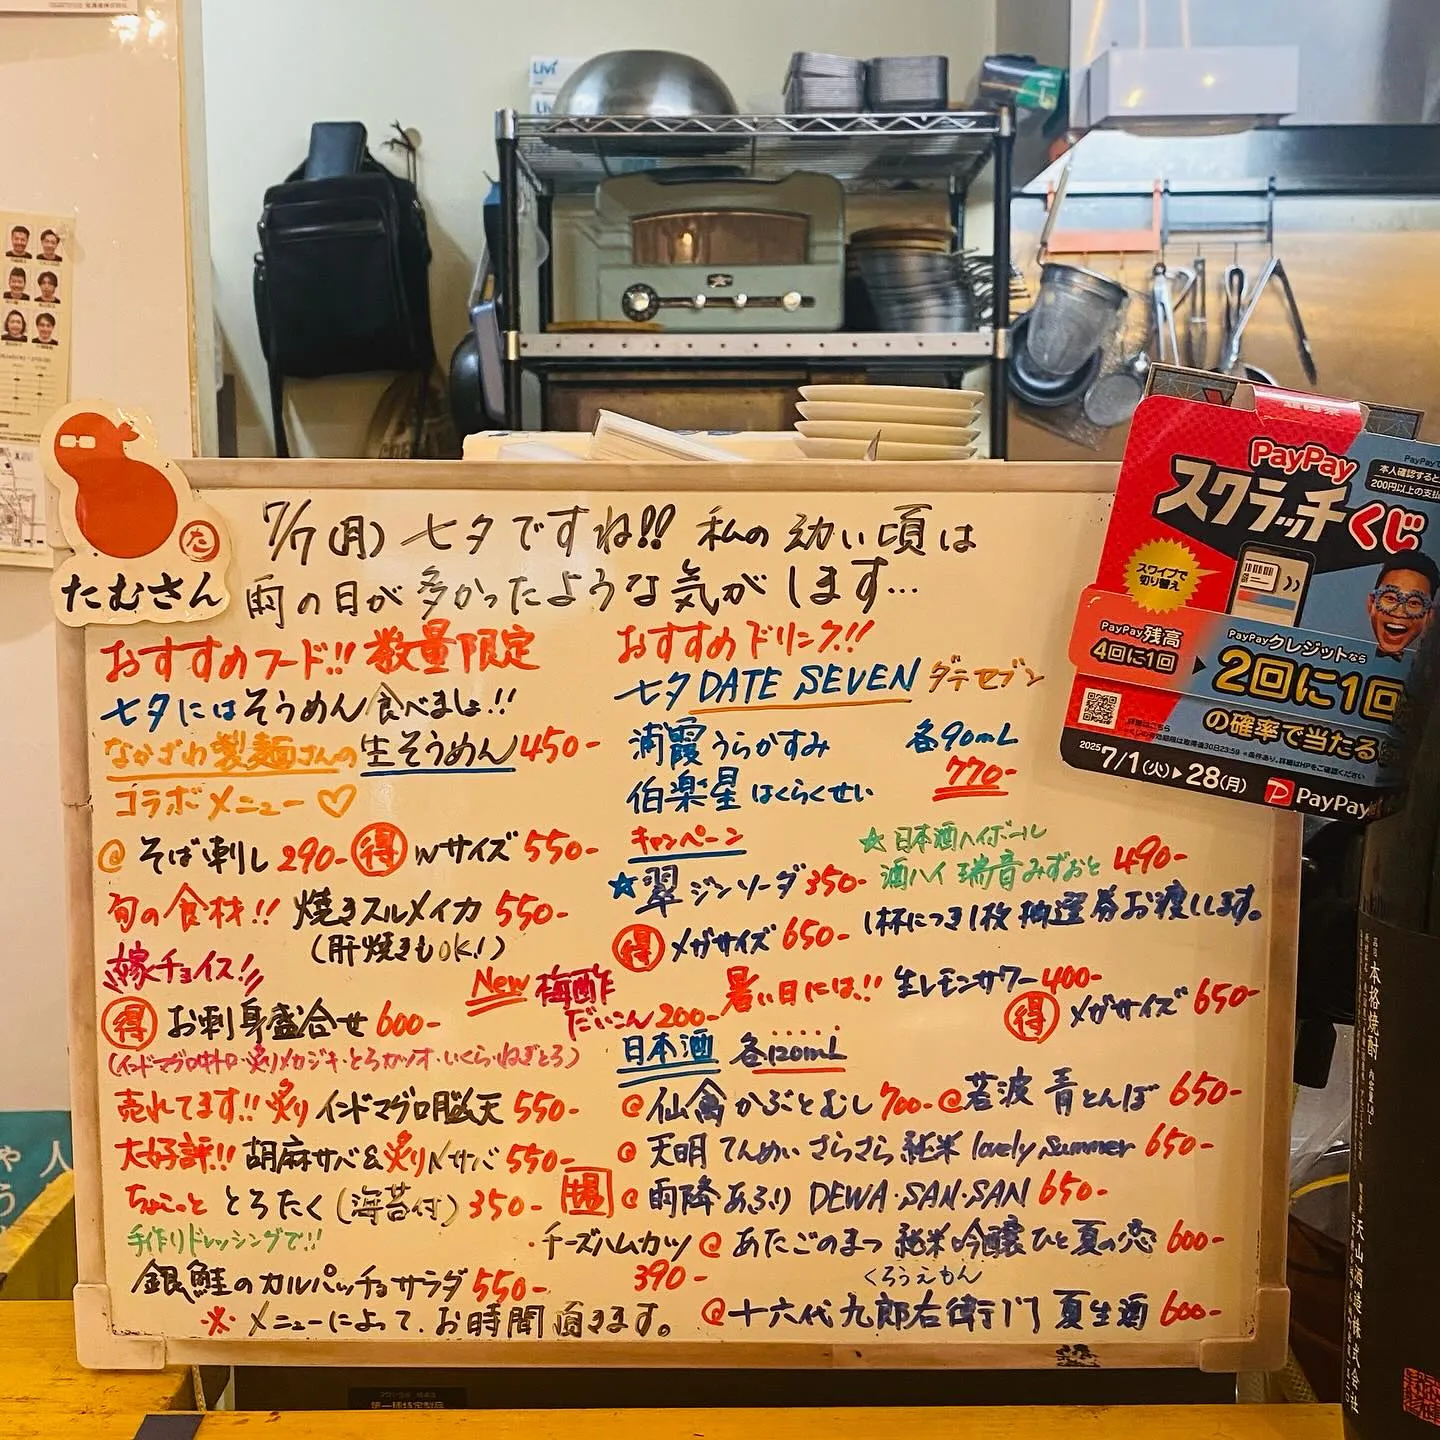 Livi
7/7(月) 七夕ですね!! 私の幼い頃は
雨の日が多かったような気がします…
た
たむさん
おすすめフード!! 数量限定
七夕にはそうめん食べましょ!!
なかざわ製麺さんの生そうめん450-
コラボメニュー♡
@ そば刺し 290- 得 Wサイズ 550-
旬の食材!! 焼きスルメイカ 550-
(肝焼きもOK!)
嫁チョイス!!
得 お刺身盛合せ 600-
(インドマグロ中トロ・炙りメカジキ・とろカツオ・いくら・ねぎとろ)
New 梅酢
だいこん 200-
売れてます!! 炙りインドマグロ脳天 550-
大好評!! 胡麻サバ&炙りNサバ 550-
ちょこっと とろたく(海苔付) 350-
手作りドレッシングで!!
銀鮭のカルパッチョサラダ 550-
・チーズハムカツ
390-
※メニューによって、お時間頂きます。
おすすめドリンク!!
七夕 DATE SEVEN ダテセブン
浦霞 うらかすみ 各90mL
伯楽星 はくらくせい 770-
キャンペーン
☆日本酒ハイボール
酒ハイ 瑞音みずおと 490-
☆翠ジンソーダ350-
得 メガサイズ 650-
1杯につき1枚 抽選券お渡しします。
暑い日には!! 生レモンサワー 400-
得 メガサイズ 650-
日本酒 各120mL
@仙禽 かぶとむし 700-
@若波 青とんぼ 650-
@天明 てんめい さらさら 純米 lovely summer 650-
@雨降 あふり DEWA・SAN・SAN 650-
@あたごのまつ 純米吟醸 ひと夏の恋 600-
くろうえもん
@十六代九郎右衛門 夏生酒 600-
PayPay
スクラッチくじ
本人確認すると
200円以上の支払
スワイプで
切り替え
PayPay残高
4回に1回
PayPayクレジットなら
2回に1回
の確率で当たる
2025 7/1(火)▶28(月)
PayPay
本格焼酎